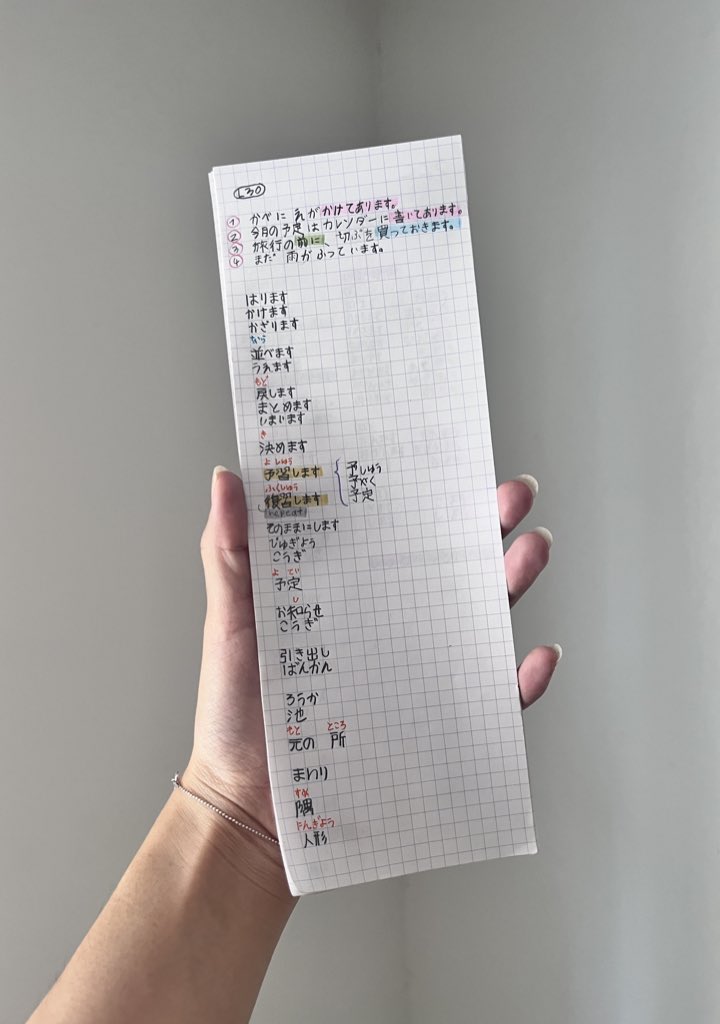 L30
① かべに えが かけてあります。
② 今月の予定 は カレンダーに 書いてあります。
③ 旅行の 前に、切ぷを 買っておきます。
④ まだ 雨が ふって います。
はります
かけます
かざります
なら
並べます
うえます
もど
戻します
まとめます
しまいます
き
決めます
よ しゅう
予習します
ふくしゅう
復習します
(repeat)
予しゅう
予やく
予定
そのままにします
じゅぎょう
こうぎ
よ てい
予定
し
お知らせ
こうぎ
引き出し
ばんかん
ろうか
池
もと ところ
元の 所
まわり
すみ
隅
にんぎょう
人形